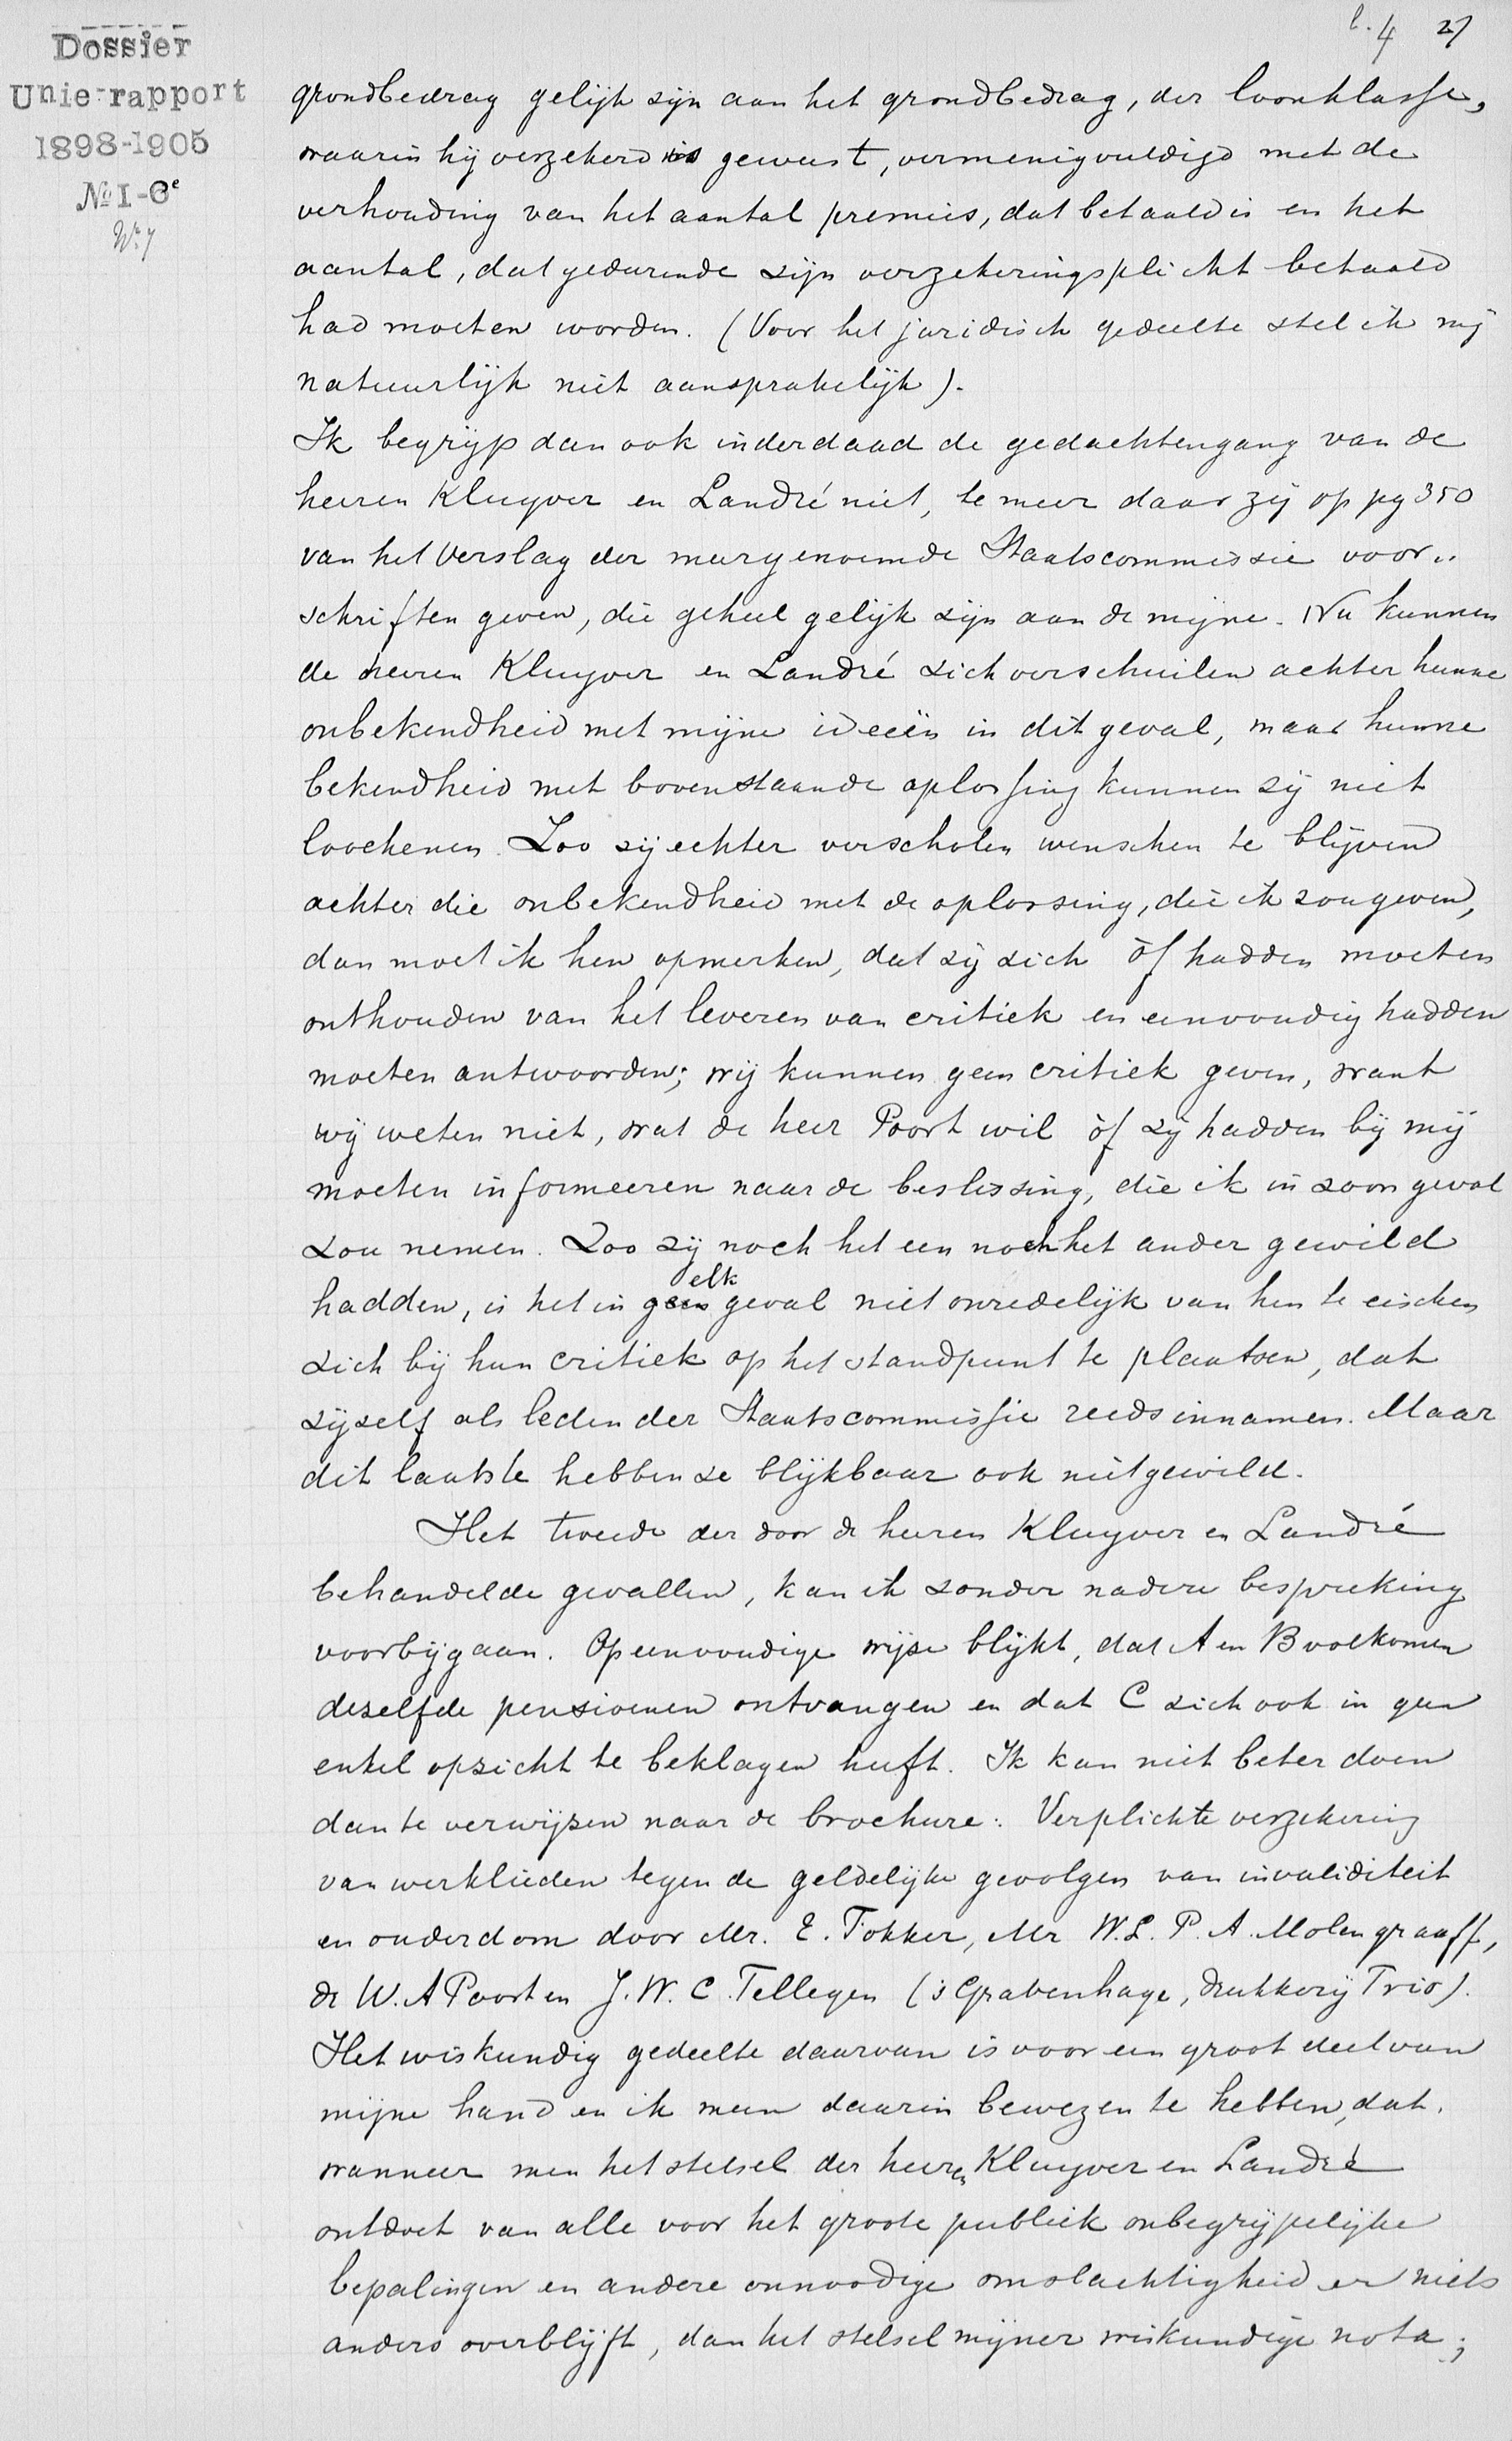 l. 4 27
Dossier
Unie-rapport
1898-1905
No I-6e
No 7
grondbedrag gelijk zijn aan het grondbedrag, der loonklasse,
waarin hij verzekerd is geweest, vermenigvuldigd met de
verhouding van het aantal premies, dat betaald is en het
aantal, dat gedurende zijn verzekeringsplicht betaald
had moeten worden. (Voor het juridisch gedeelte stel ik mij
natuurlijk niet aansprakelijk).
Ik begrijp dan ook inderdaad de gedachtengang van de
heeren Kluyver en Landré niet, te meer daar zij op pg 350
van het Verslag der meergenoemde Staatscommissie voor„
schriften geven, die geheel gelijk zijn aan de mijne. Nu kunnen
de heeren Kluyver en Landré zich verschuilen achter hunne
onbekendheid met mijne ideeën in dit geval, maar hunne
bekendheid met bovenstaande oplossing kunnen zij niet
loochenen. Zoo zij echter verscholen wenschen te blijven
achter die onbekendheid met de oplossing, die ik zou geven,
dan moet ik hen opmerken, dat zij zich òf hadden moeten
onthouden van het leveren van critiek en eenvoudig hadden
moeten antwoorden; wij kunnen geen critiek geven, want
wij weten niet, wat de heer Poort wil òf zij hadden bij mij
moeten informeeren naar de beslissing, die ik in zoon geval
zou nemen. Zoo zij noch het een noch het ander gewild
hadden, is het in geen elk geval niet onredelijk van hen te eischen
zich bij hun critiek op het standpunt te plaatsen, dat
zijzelf als leden der Staatscommissie reeds innamen. Maar
dit laatste hebben ze blijkbaar ook niet gewild.
Het tweede der door de heeren Kluyver en Landré
behandelde gevallen, kan ik zonder nadere bespreking
voorbijgaan. Op eenvoudige wijze blijkt, dat A en B volkomen
dezelfde pensioenen ontvangen en dat C zich ook in geen
enkel opzicht te beklagen heeft. Ik kan niet beter doen
dan te verwijzen naar de brochure: Verplichte verzekering
van werklieden tegen de geldelijke gevolgen van invaliditeit
en ouderdom door Mr. E. Fokker, Mr W.L.P.A. Molengraaff,
dr W. A Poort en J.W.C. Tellegen ('s Gravenhage, drukkerij Trio).
Het wiskundig gedeelte daarvan is voor een groot deel van
mijne hand en ik meen daarin bewezen te hebben, dat,
wanneer men het stelsel der heeren Kluyver en Landré
ontdoet van alle voor het groote publiek onbegrijpelijke
bepalingen en andere onnoodige omslachtigheid er niets
anders overblijft, dan het stelsel mijner wiskundige nota;